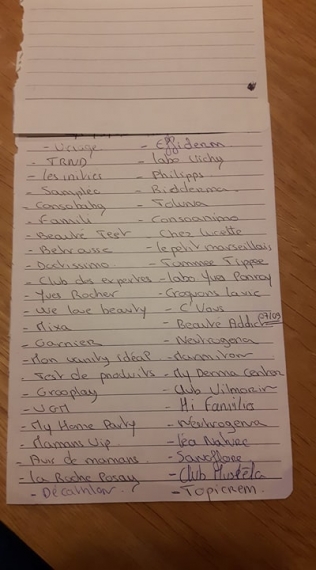 - TRND
- Les initiés
- Sampleo
- Famili
- Beauté Test
- Betrousse
- Doctissimo
- Club des expertes
- Yves Rocher
- We love beauty
- Mixa
- Garnier
- Mon vanity idéal
- Test de produits
- Grooplay
- My Home Party
- Mamans Vip
- Avis de mamans
- La Roche Posay
- Décathlon
- Effiderm
- labo Vichy
- Philipps
- Bioderma
- Toluna
- Consoanimo
Chez Lucette
- le petit marseillais
- Tommee Tippee
- labo Yves Ponroy
- Croquons la vie
- C'Vous
- Beauté Addict 07/09
- Neutrogena
- Marmiton
- My Derma Center
- Club Vilmorin
- Hi Families
- Neutrogena
- Léa Nature
- Sanoflore
- Club Mustela
- Topicrem